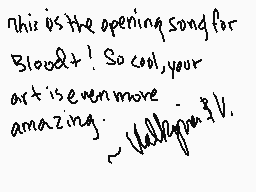 This is the opening song for
Blood+! So cool, your
art is even more
amazing.
~ Valkyrie & V.